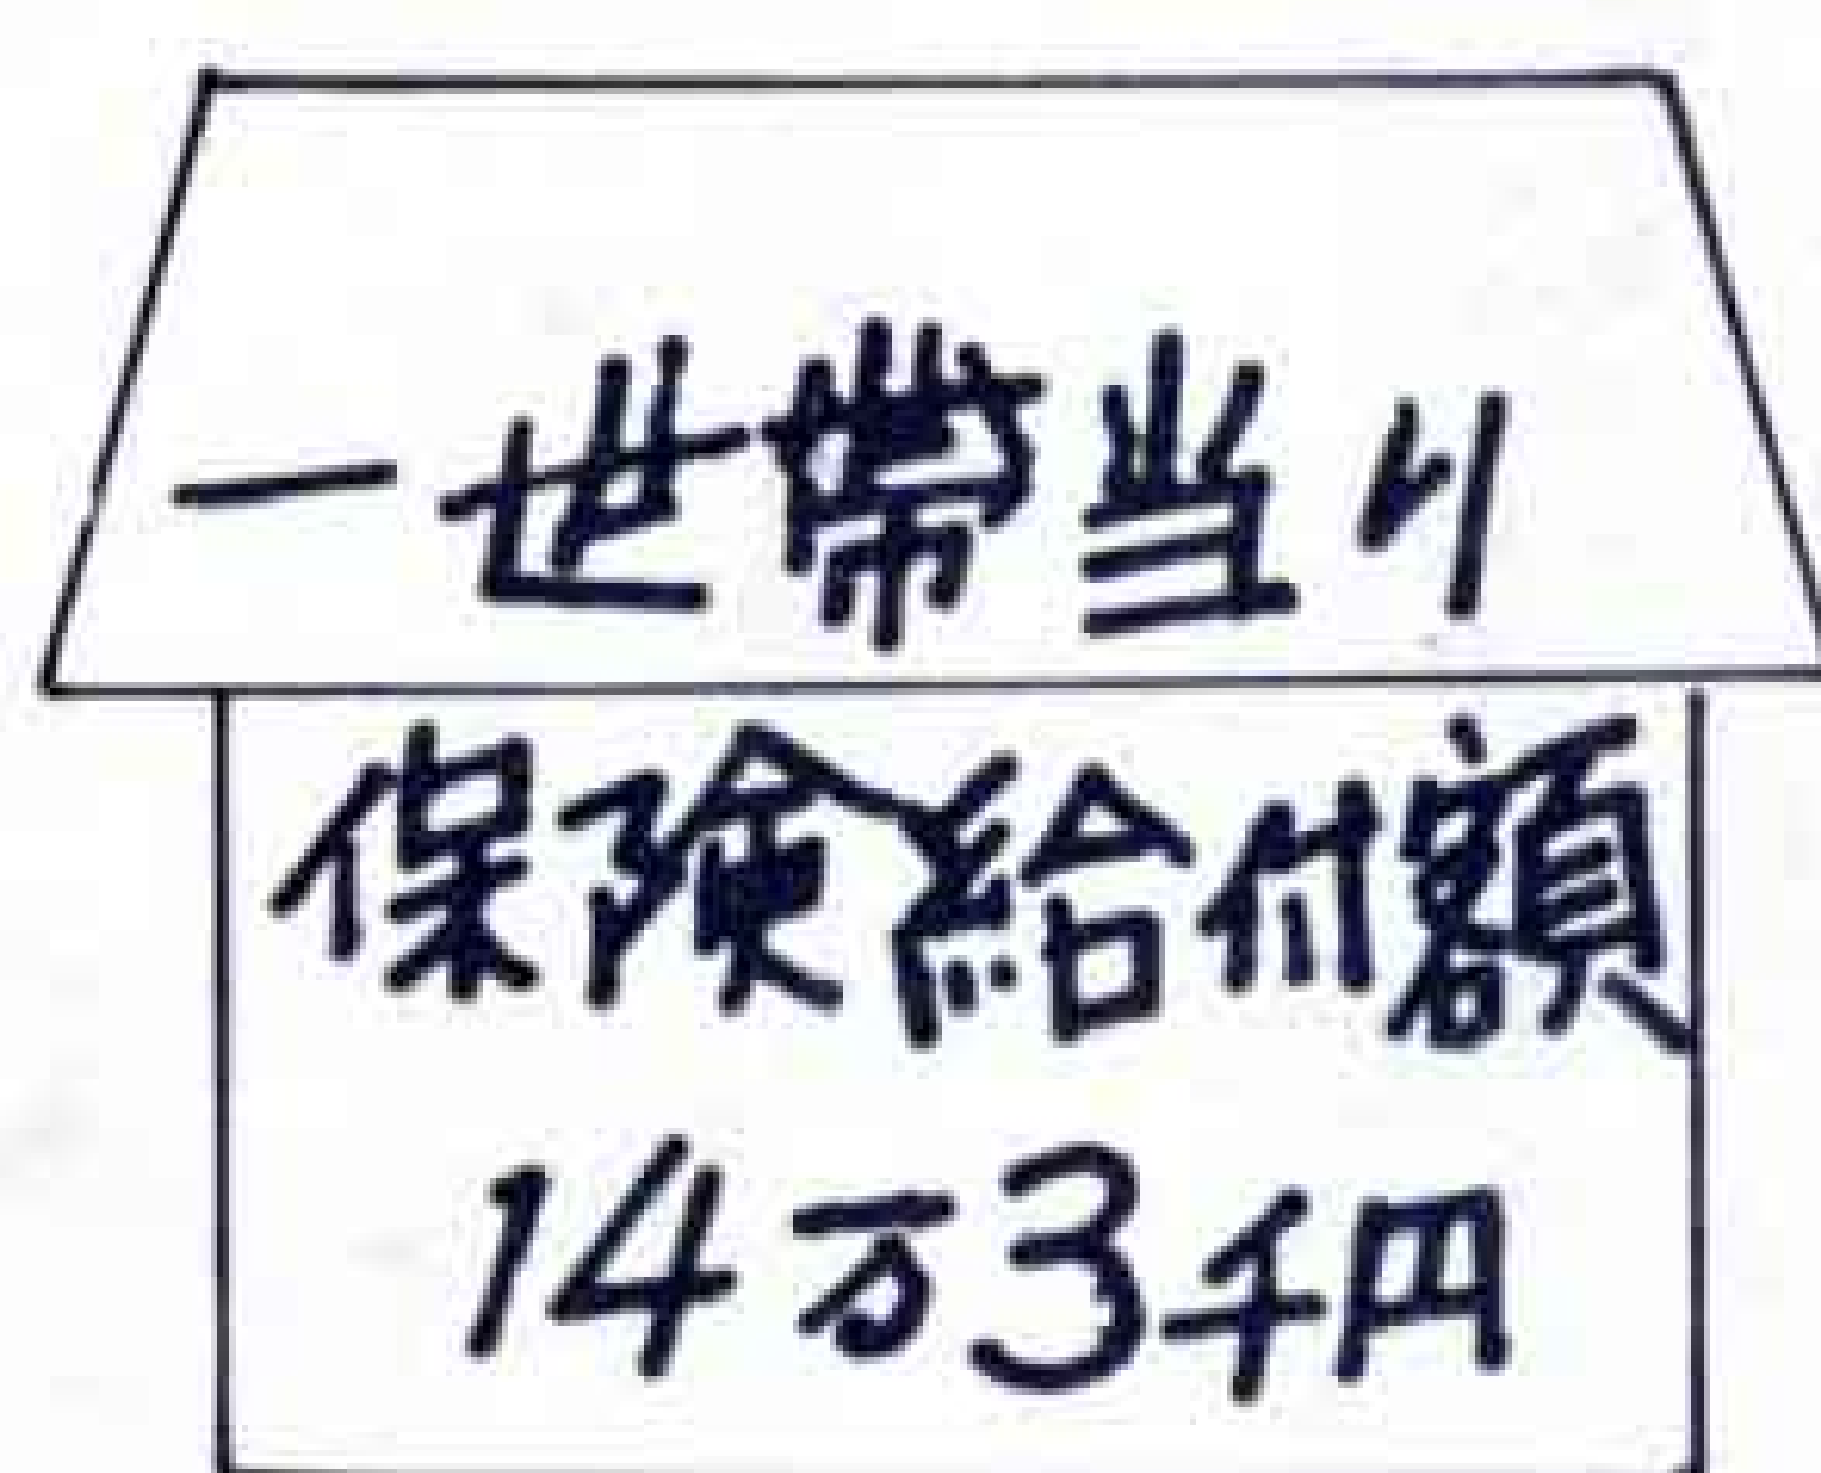 一世帯当り
保険給付額
14万3千円